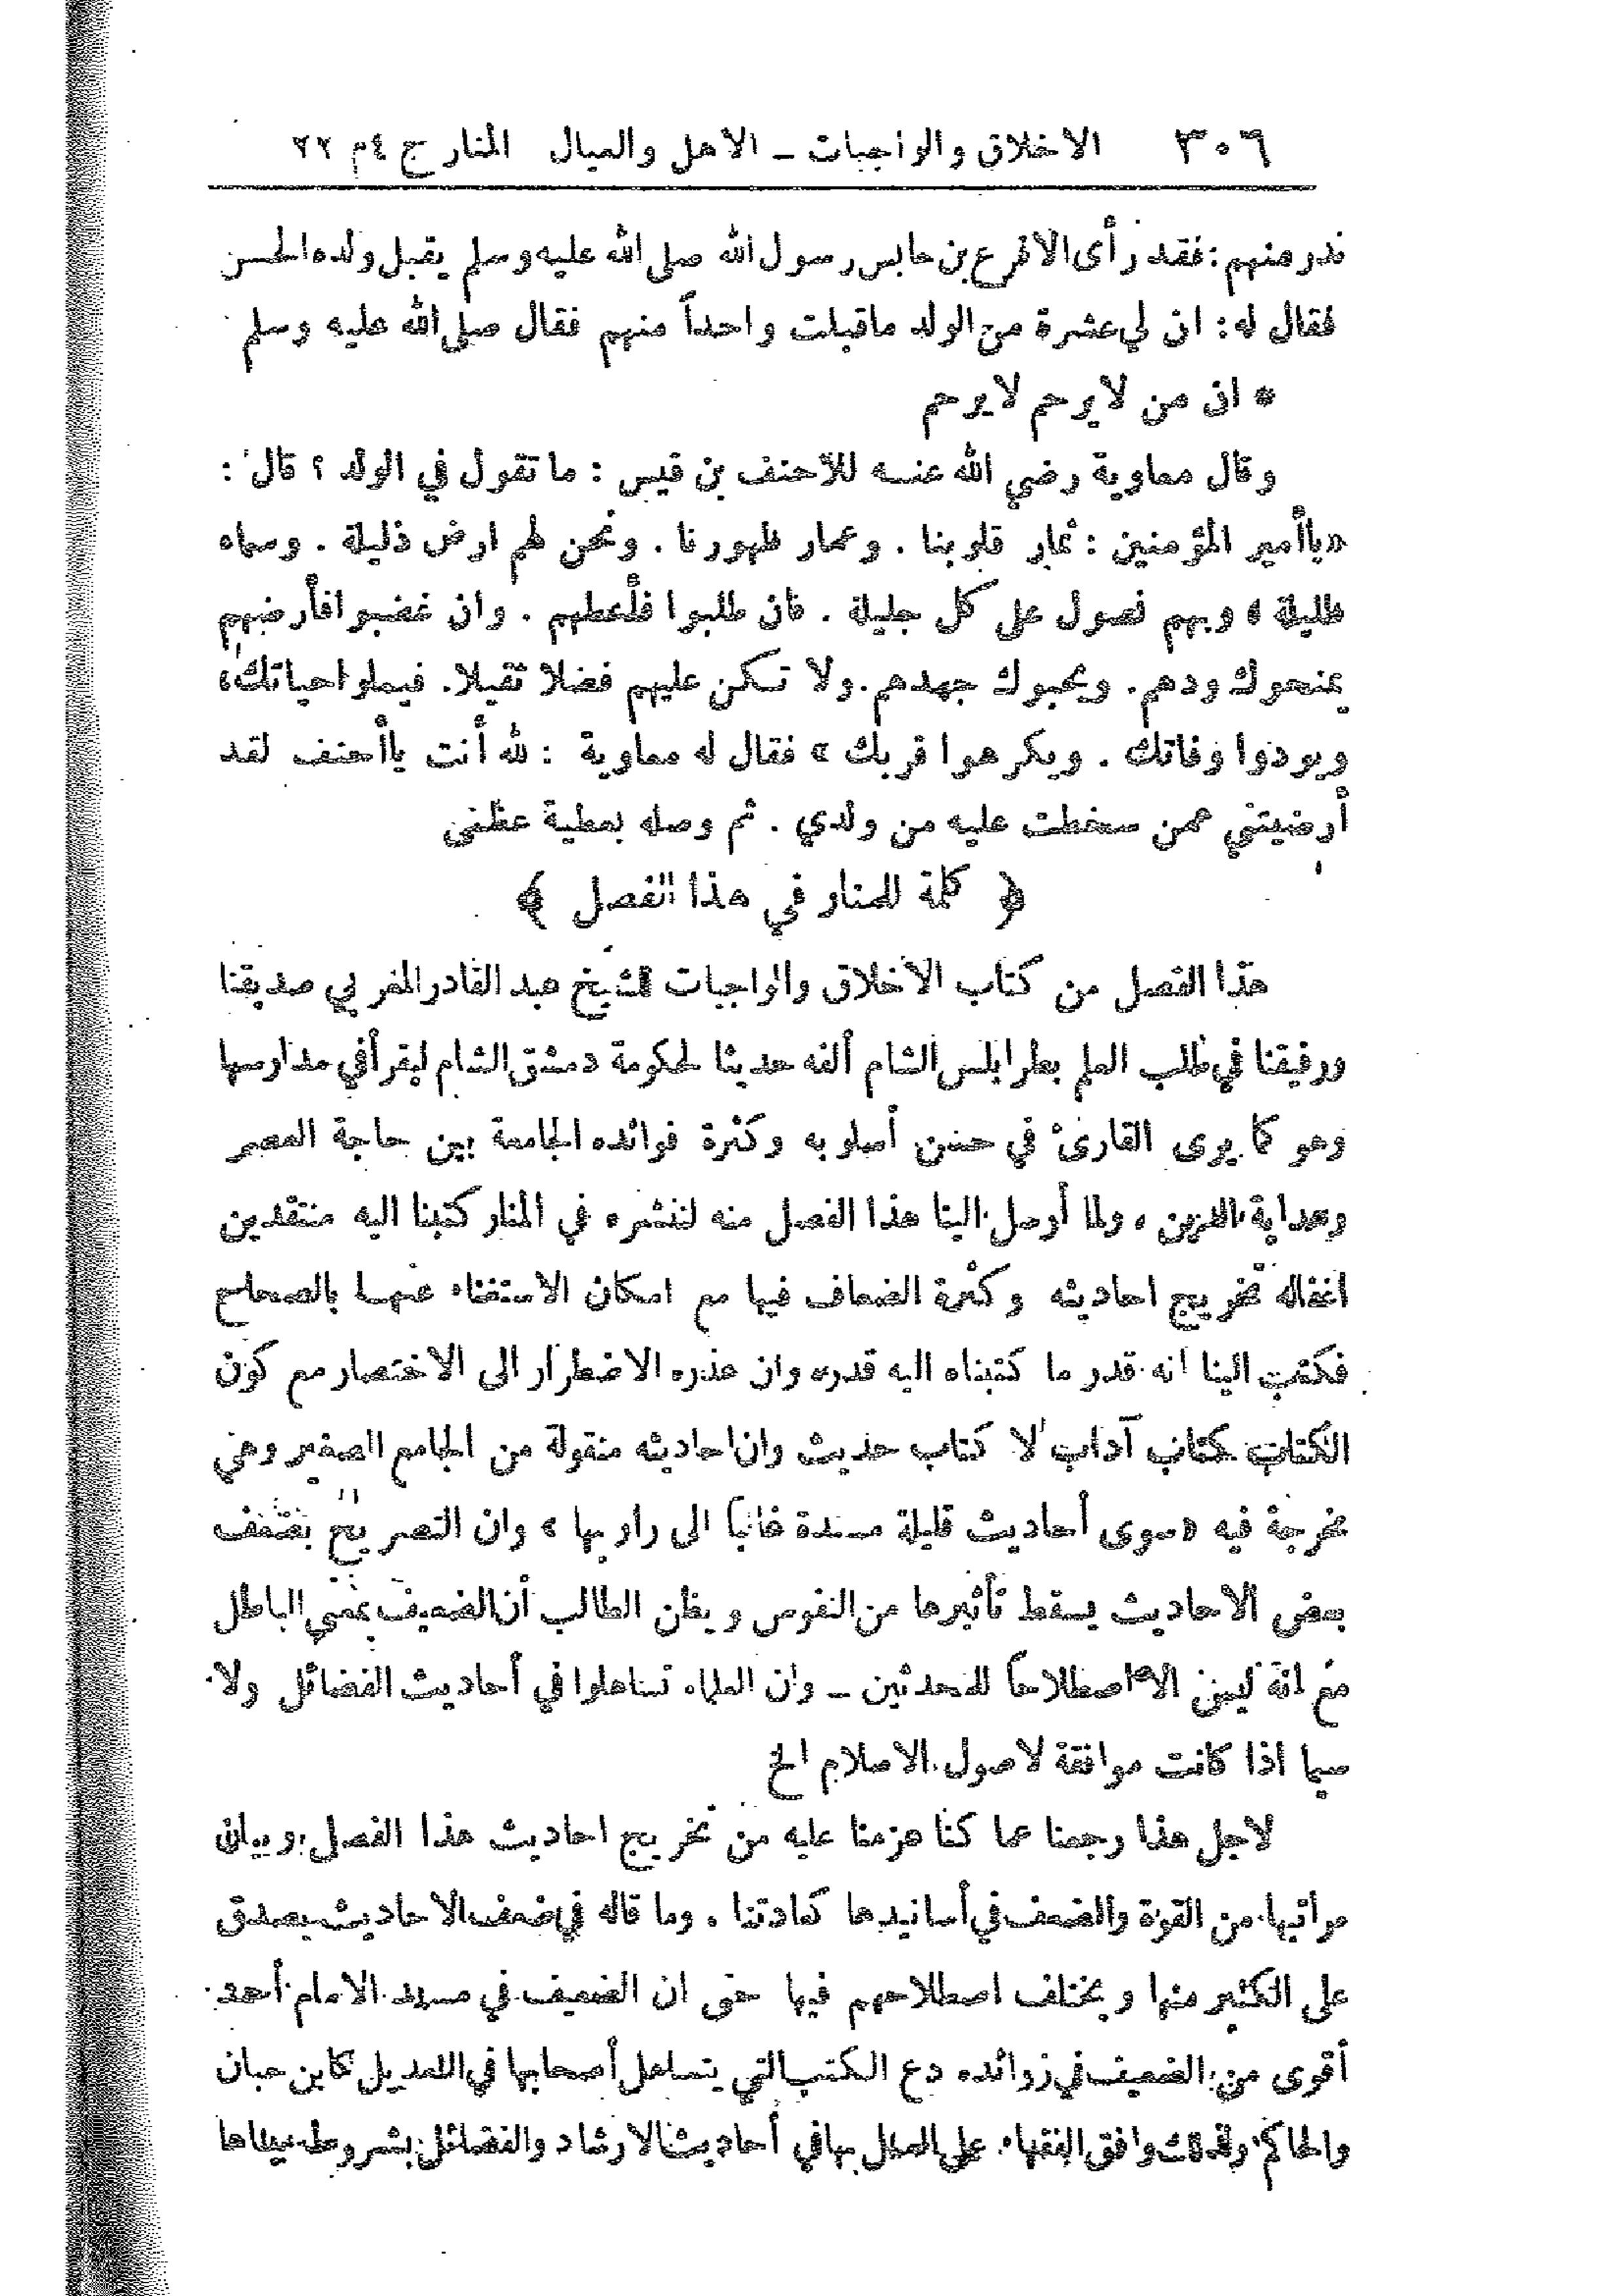 ٣٠٦ الاخلاق والواجبات ــ الاهل والعيال المنار ج ٤ م ٢٢
ندر منهم : فقد رأى الاقرع بن حابس رسول الله صلى الله عليه وسلم يقبل ولده الحسن
فقال له : ان لي عشرة من الولد ما قبلت واحداً منهم فقال صلى الله عليه وسلم
* ان من لا يرحم لا يرحم
وقال معاوية رضي الله عنـه للأحنف بن قيس : ما تقول في الولد ؟ قال :
« ياأمير المؤمنين : ثمار قلوبنا . وعماد ظهورنا . ونحن لهم ارض ذليلة . وسماء
ظليلة ، وبهم نصول على كل جليلة . فان طلبوا فأعطهم . وان غضبوا فأرضهم
يمنحوك ودهم . ويحبوك جهدهم . ولا تـكن عليهم فضلا ثقيلا . فيملوا حياتك ،
ويودوا وفاتك . ويكرهوا قربك » فقال له معاوية : لله أنت ياأحنف لقد
أرضيتني عمن سخطت عليه من ولدي . ثم وصله بعطية عظمى
﴿ كلمة للمنار في هذا الفصل ﴾
هذا الفصل من كتاب الاخلاق والواجبات للشيخ عبد القادر المغربي صديقنا
ورفيقنا في طلب العلم بطرابلس الشام ألفه حديثا لحكومة دمشق الشام ليقرأ في مدارسها
وهو كما يرى القارئ في حسن أسلوبه وكثرة فوائده الجامعة بين حاجة العصر
وهداية الدين ، ولما أرسل الينا هذا الفصل منه لننشره في المنار كتبنا اليه منتقدين
اغفاله تخريج احاديثه وكثرة الضعاف فيها مع امكان الاستغناء عنهـا بالصحاح
فكتب الينا انه قدر ما كتبناه اليه قدره وان عذره الاضطرار الى الاختصار مع كون
الكتاب كتاب آداب لا كتاب حديث وان احاديثه منقولة من الجامع الصغير وهي
مخرجة فيه « سوى أحاديث قليلة مسندة غالباً الى راويها » وان التصريح بضعف
بعض الاحاديث يسقط تأثيرها من النفوس ويظن الطالب أن الضعيف بمعنى الباطل
مع انه ليس الا اصطلاحاً للمحدثين ــ وان العلماء تساهلوا في أحاديث الفضائل ولا
سيما اذا كانت موافقة لاصول الاسلام الخ
لاجل هذا رجعنا عما كنا عزمنا عليه من تخريج احاديث هذا الفصل وبيان
مراتبها من القوة والضعف في أسانيدها كعادتنا . وما قاله في ضعف الاحاديث يصدق
على الكثير منها ويختلف اصطلاحهم فيها حتى ان الضعيف في مسند الامام أحمد
أقوى من الضعيف في زوائده دع الكتب التي يتساهل أصحابها في التعديل كابن حبان
والحاكم ولذلك وافق الفقهاء على العمل بها في أحاديث الارشاد والفضائل بشروط بيناها